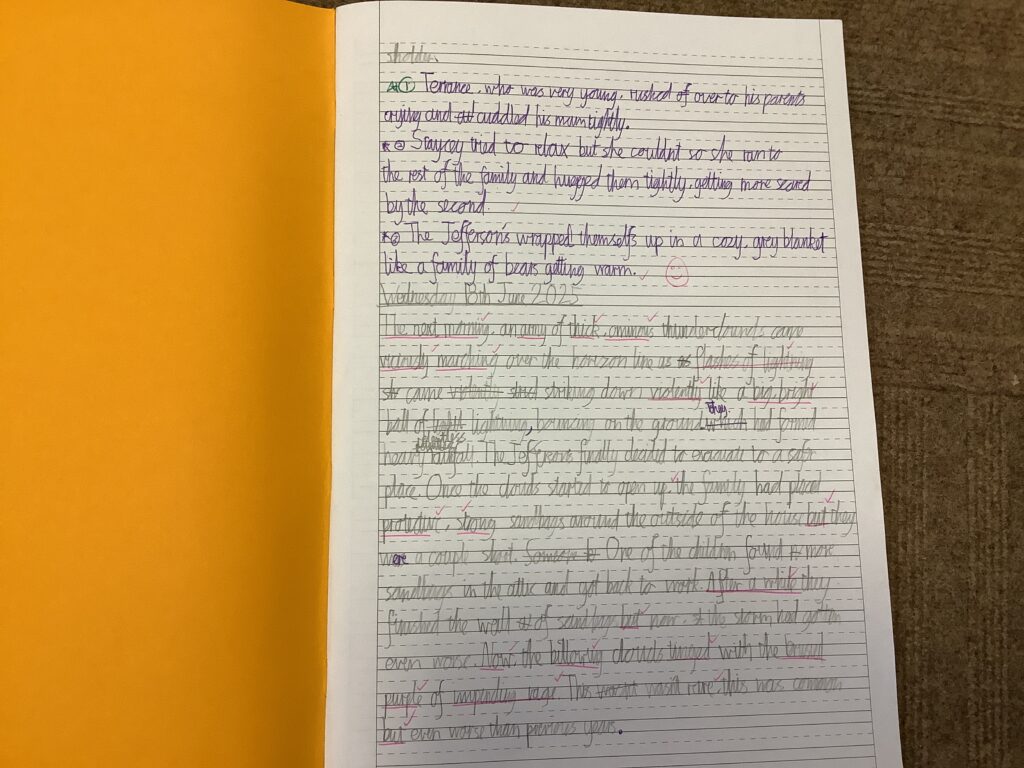 A(1) Terrance, who was very young, rushed of over to his parents
crying and cuddled his mam tightly.
Staycey tried to relax but she couldnt so she ran to
the rest of the family and hugged them tightly, getting more scared
by the second.
The Jefferson's wrapped themselfs up in a cozy, grey blanket
like a family of bears getting warm.
Wednesday 18th June 2025
The next morning, an army of thick, ominous thunderclounds came
viciously marching over the horizon line as flashes of lightning
came striking down violently like a big, bright
they
ball of lightning, bouncing on the ground had formed
heavy rainfall. The Jefferson's finally decided to evacuate to a safe
place. Once the clouds started to open up, the family had placed
protective, strong sandbags around the outside of the house but they
were a couple short. One of the children found more
sandbags in the attic and got back to work. After a while they
finished the wall of sandbags but now, the storm had gotten
even worse. Now, the billowing clouds tinged with the bruised
purple of impending rage. This wasn't rare, this was common
but even worse than previous years.